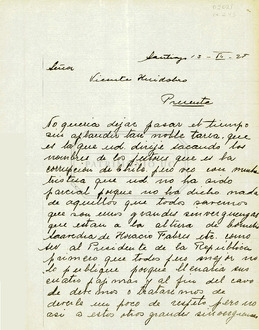 Santiago 12 - IX - 25
Señor
Vicente Huidobro
Presente
Yo queria dejar pasar el tiempo
sin aplaudir tan noble tarea que
es la que ud dirije sacando los
nombre de los que es la
corrupcion de Chile, pero veo con mucha
tristesa que ud no ha sido
parcial porque no ha dicho nada
de aquellos que todos savemos
que son unos grandes sinverguenzas
que estan a la altura de
de Horacio Fabres etc. como
ser al Presidente de la Republica
primero que todos pero mejor no
lo publique porque llenaria sus
cuatro pajinas y al fin del cavo
de deberle un poco de respeto pero no
asi a estos otros grandes sinverguenzas